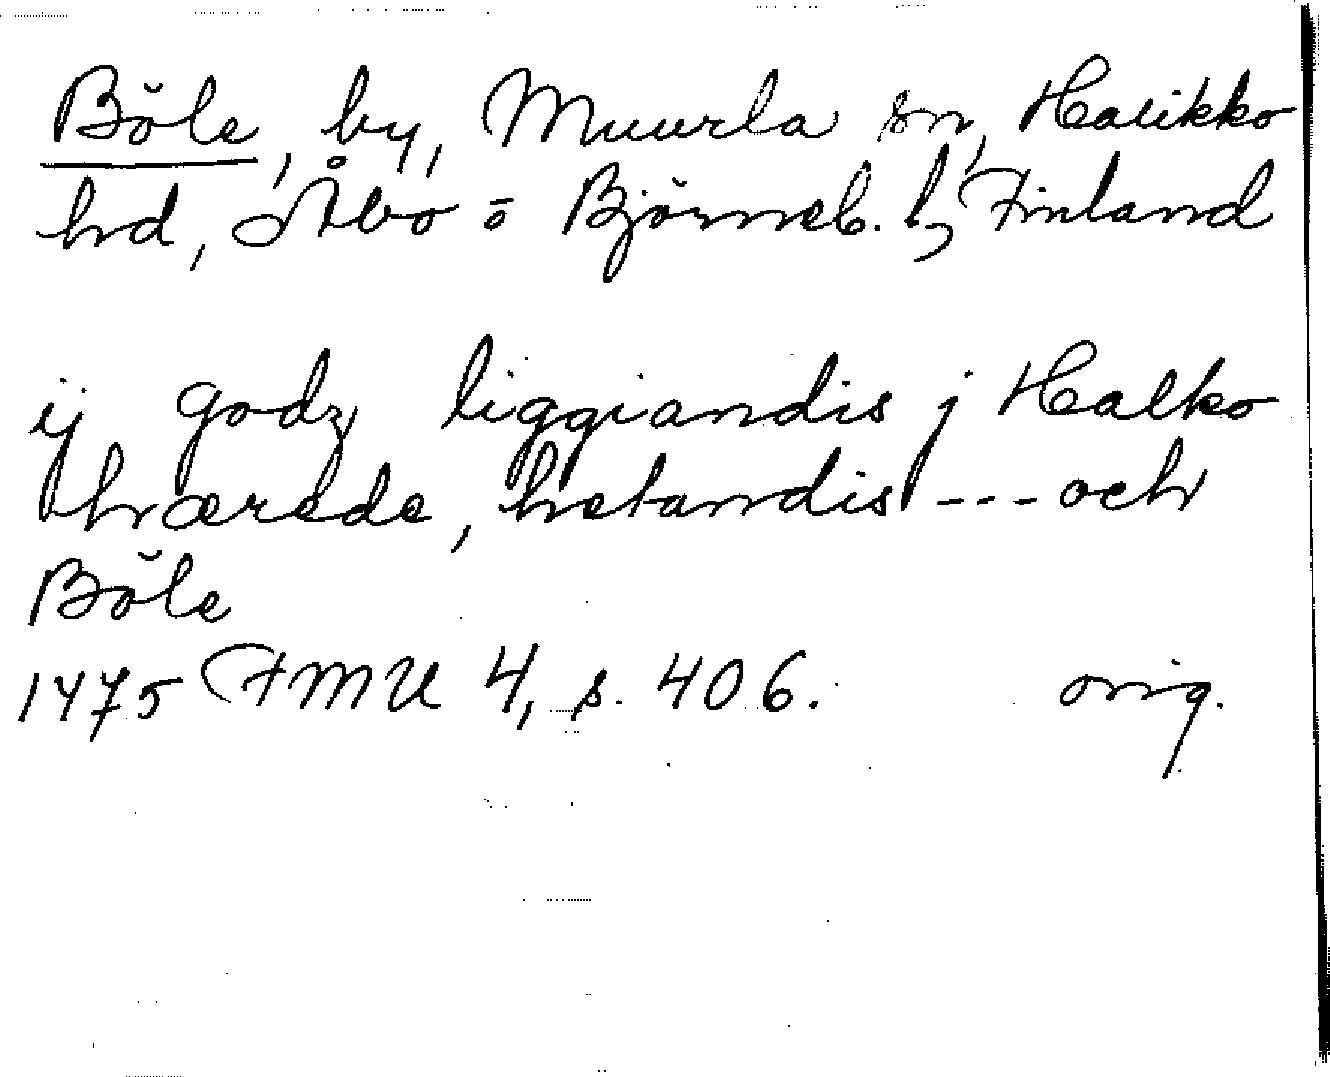 Böle, by, Muurla sn, Halikko
hd, Åbo o Björneb. l, Finland
ij godz liggiandis j Halko
hærede, hetandis --- och
Böle
1475 FMU 4, s. 406. orig.